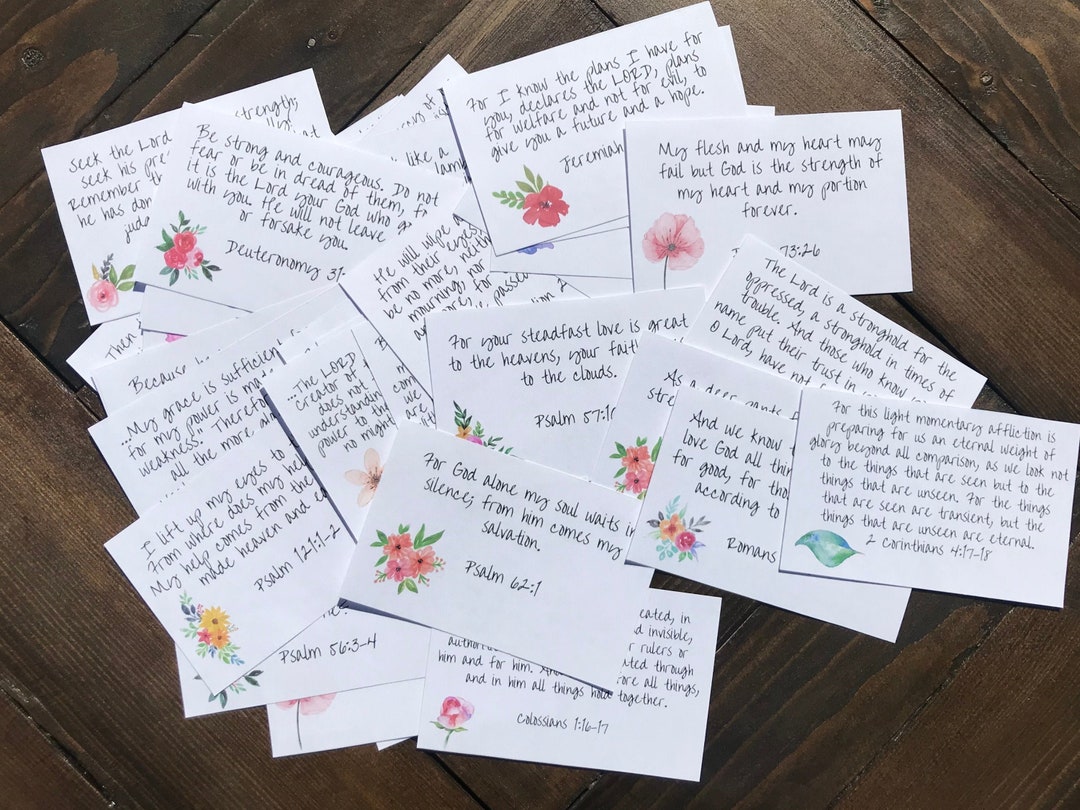 Seek the Lord
strength;
seek his
Remember
he has
Be strong and courageous. Do not
fear or be in dread of them, f
it is the Lord your God who g
with you. He will not leave
or forsake you
Deuteronomy 31
like a
For I know the plans I have for
you, declares the LORD, plans
for welfare and not for evil, to
give you a future and a hope.
Jeremiah
My flesh and my heart may
fail but God is the strength of
my heart and my portion
forever.
73:26
He will wipe
from their eyes,
be no more,
mourning, nor
for
passed
The Lord is a stronghold for the
oppressed, a stronghold in times of
trouble. And those who know your
name put their trust in
O Lord, have not
Then
Because
For your steadfast love is great
to the heavens, your faith
to the clouds.
Psalm 57:10
...My grace is sufficient
for my power is ma
weakness." Therefor
all the more,
...The LORD
creator of
does not
understandin
power to th
no migh
As a deer pants
stre
And we know
love God all thin
for good, for tho
according to
Romans
For this light momentary affliction is
preparing for us an eternal weight of
glory beyond all comparison, as we look not
to the things that are seen but to the
things that are unseen. For the things
that are seen are transient, but the
things that are unseen are eternal.
2 Corinthians 4:17-18
I lift up my eyes to
From where does my hel
My help comes from the
made heaven and e
Psalm 121:1-2
For God alone my soul waits in
silence; from him comes my
salvation.
Psalm 62:1
Psalm 56:3-4
eated, in
d invisible,
r rulers or
author
ated through
him and for him. And
ore all things,
and in him all things hold together.
Colossians 1:16-17